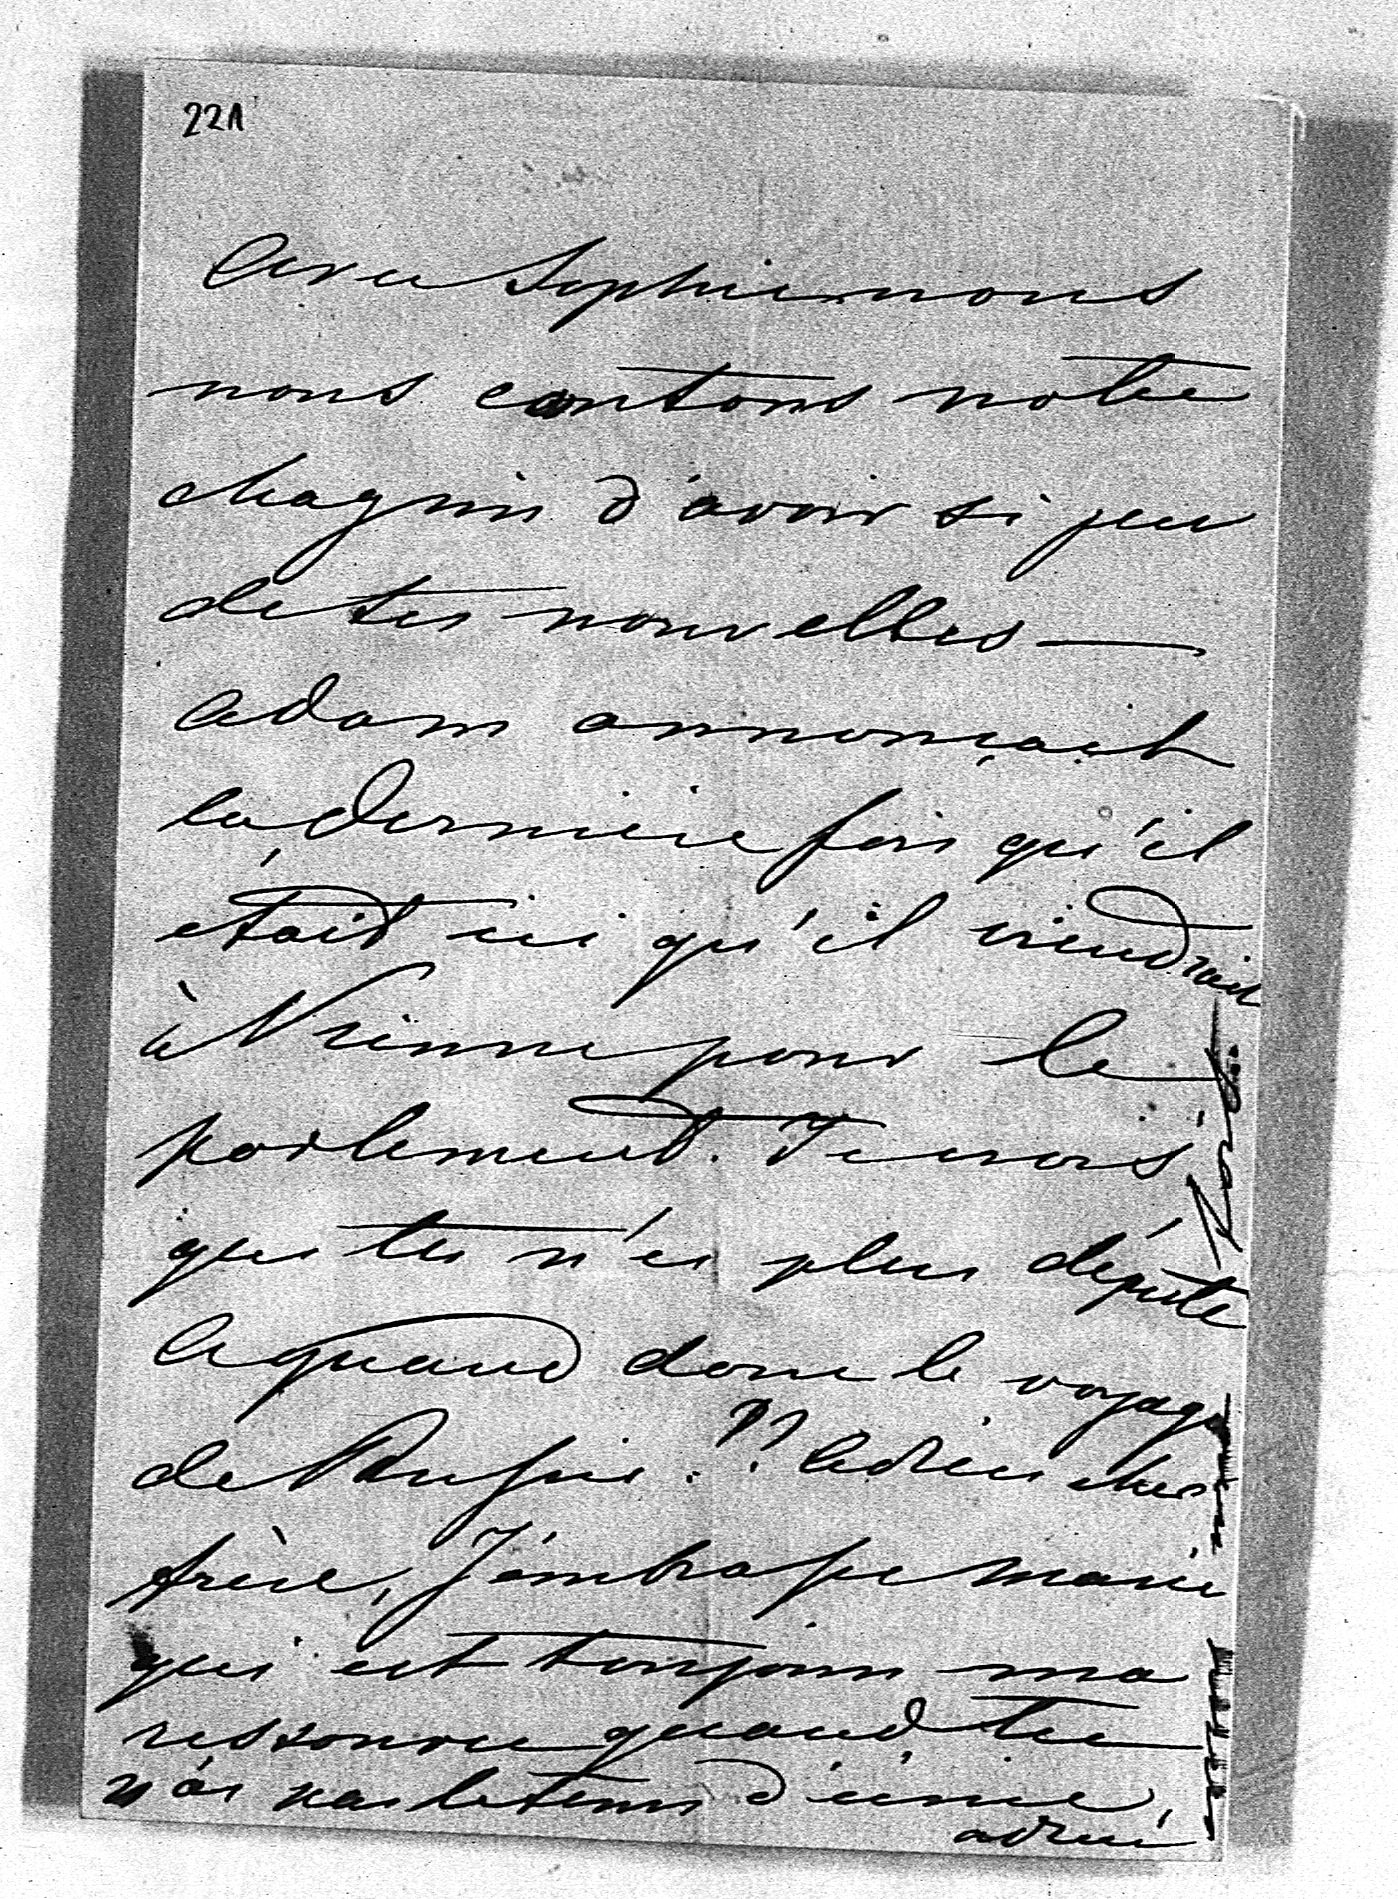 221
Avec Sophie nous
nous contons notre
chagrin d'avoir si peu
de tes nouvelles —
Adam annonçait
la dernière fois qu'il
était ici qu'il viendrait
à Vienne pour le
parlement. Je crois
que tu n'es plus député
A quand donc le voyage
de Russie. ?? Adieu cher
frère, J'embrasse Marie
qui est toujours ma
ressource quand tu
n'as pas le tems d'écrire,
adieu